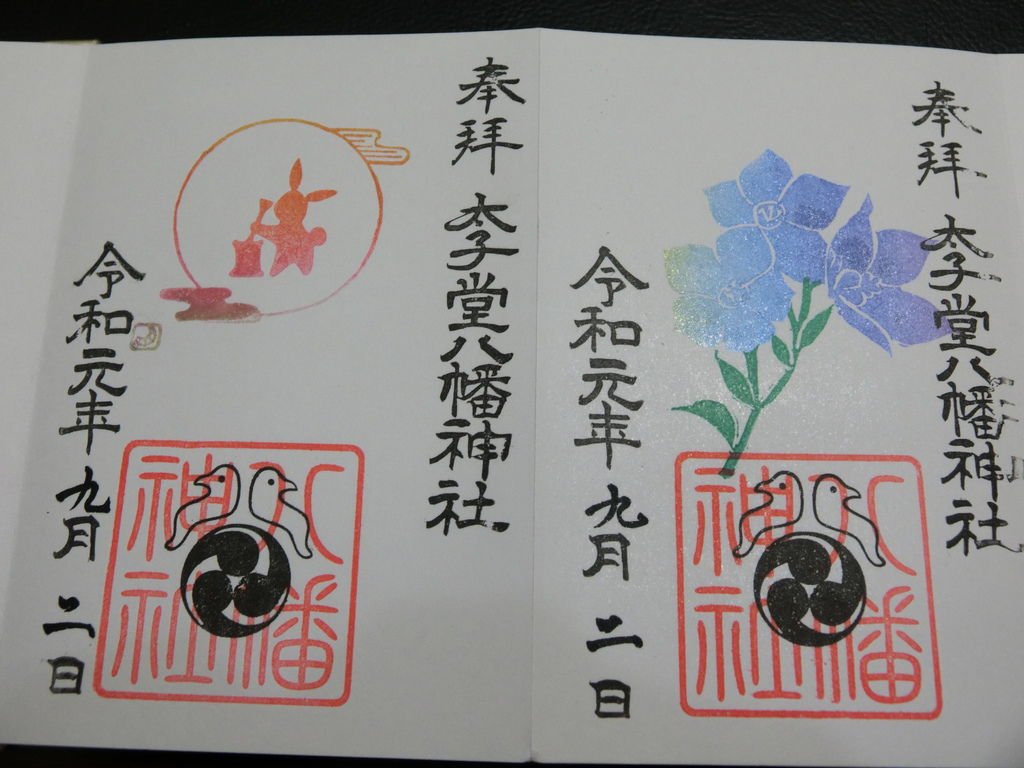 奉拝
太子堂八幡神社
令和元年
九月
二日
八幡
神社
奉拝
太子堂八幡神社
令和元年
九月
二日
八幡
神社